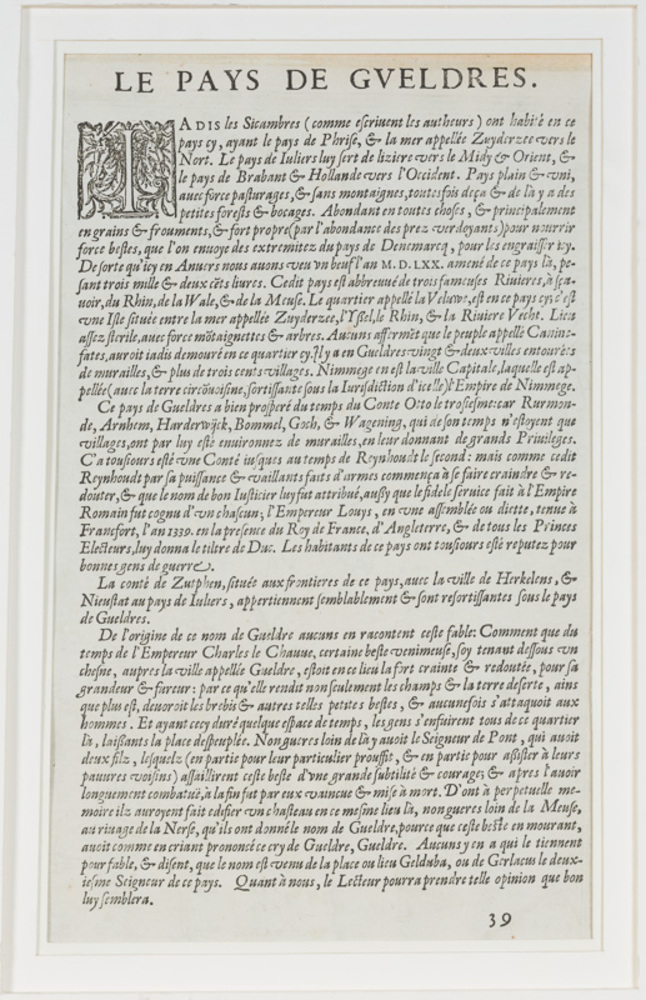 LE PAYS DE GVELDRES.
IADIS les Sicambres (comme eſcriuent les autheurs) ont habité en ce
pays cy, ayant le pays de Phriſe, & la mer appellée Zuyderzee vers le
Nort. Le pays de Iuliers luy ſert de liziere vers le Midy & Orient, &
le pays de Brabant & Hollande vers l'Occident. Pays plain & vni,
auec force paſturages, & ſans montaignes, toutesfois deça & de là y a des
petites foreſts & bocages. Abondant en toutes choſes, & principalement
en grains & frouments, & fort propre (par l'abondance des prez verdoyants) pour nourrir
force beſtes, que l'on enuoye des extremitez du pays de Denemarcq, pour les engraiſſer icy.
De ſorte qu'icy en Anuers nous auons veu vn beuf l'an M.D.LXX. amené de ce pays là, pe-
ſant trois mille & deux cēts liures. Cedit pays eſt abbreuué de trois fameuſes Riuieres, à ſça-
uoir, du Rhin, de la Wale, & de la Meuſe. Le quartier appellé la Veluwe, eſt en ce pays cy; c'eſt
vne Iſle ſituée entre la mer appellée Zuyderzee, l'Yſſel, le Rhin, & la Riuiere Vecht. Lieu
aſſez ſterile, auec force mōtaignettes & arbres. Aucuns affermēt que le peuple appellé Canine-
fates, auroit iadis demouré en ce quartier cy. Il y a en Gueldres vingt & deux villes entourées
de murailles, & plus de trois cents villages. Nimmege en eſt la ville Capitale, laquelle eſt ap-
pellée (auec la terre circōuoiſine, ſortiſſante ſous la Iurisdiction d'icelle) l'Empire de Nimmege.
Ce pays de Gueldres a bien proſperé du temps du Conte Otto le troſieſme: car Rurmon-
de, Arnhem, Harderwijck, Bommel, Goch, & Wagening, qui de ſon temps n'eſtoyent que
villages, ont par luy eſté enuironnez de murailles, en leur donnant de grands Priuileges.
C'a touſiours eſté vne Conté iuſques au temps de Reynhoudt le ſecond: mais comme cedit
Reynhoudt par ſa puiſſance & vaillants faits d'armes commença à ſe faire craindre & re-
douter, & que le nom de bon Iuſticier luy fut attribué, auſſy que le fidele ſeruice fait à l'Empire
Romain fut cognu d'vn chaſcun; l'Empereur Louys, en vne aſſemblée ou diette, tenue à
Francfort, l'an 1339. en la preſence du Roy de France, d'Angleterre, & de tous les Princes
Electeurs, luy donna le tiltre de Duc. Les habitants de ce pays ont touſiours eſté reputez pour
bonnes gens de guerre.
La conté de Zutphen, ſituée aux frontieres de ce pays, auec la ville de Herkelens, &
Nieuſtat au pays de Iuliers, appertiennent ſemblablement & ſont reſortiſſantes ſous le pays
de Gueldres.
De l'origine de ce nom de Gueldre aucuns en racontent ceſte fable: Comment que du
temps de l'Empereur Charles le Chauue, certaine beſte venimeuſe, ſoy tenant deſſous vn
cheſne, aupres la ville appellée Gueldre, eſtoit en ce lieu la fort crainte & redoutée, pour ſa
grandeur & fureur: par ce qu'elle rendit non ſeulement les champs & la terre deſerte, ains
que plus eſt, deuoroit les brebis & autres telles petites beſtes, & aucuneſois s'attaquoit aux
hommes. Et ayant cecy duré quelque eſpace de temps, les gens s'enfuirent tous de ce quartier
là, laiſſants la place deſpeuplée. Non gueres loin de là y auoit le Seigneur de Pont, qui auoit
deux filz, leſquelz (en partie pour leur particulier prouffit, & en partie pour aſſiſter à leurs
pauures voiſins) aſſaillirent ceſte beſte d'vne grande ſubtilité & courage; & apres l'auoir
longuement combatuë, à la fin fut par eux vaincue & miſe à mort. D'ont à perpetuelle me-
moire ilz auroyent fait edifier vn chaſteau en ce meſme lieu là, non gueres loin de la Meuſe,
au riuage de la Nerſe, qu'ils ont donné le nom de Gueldre, pource que ceſte beſte en mourant,
auoit comme en criant prononcé ce cry de Gueldre, Gueldre. Aucuns y en a qui le tiennent
pour fable, & diſent, que le nom eſt venu de la place ou lieu Gelduba, ou de Gerlacus le deux-
ieſme Seigneur de ce pays. Quant à nous, le Lecteur pourra prendre telle opinion que bon
luy ſemblera.
39